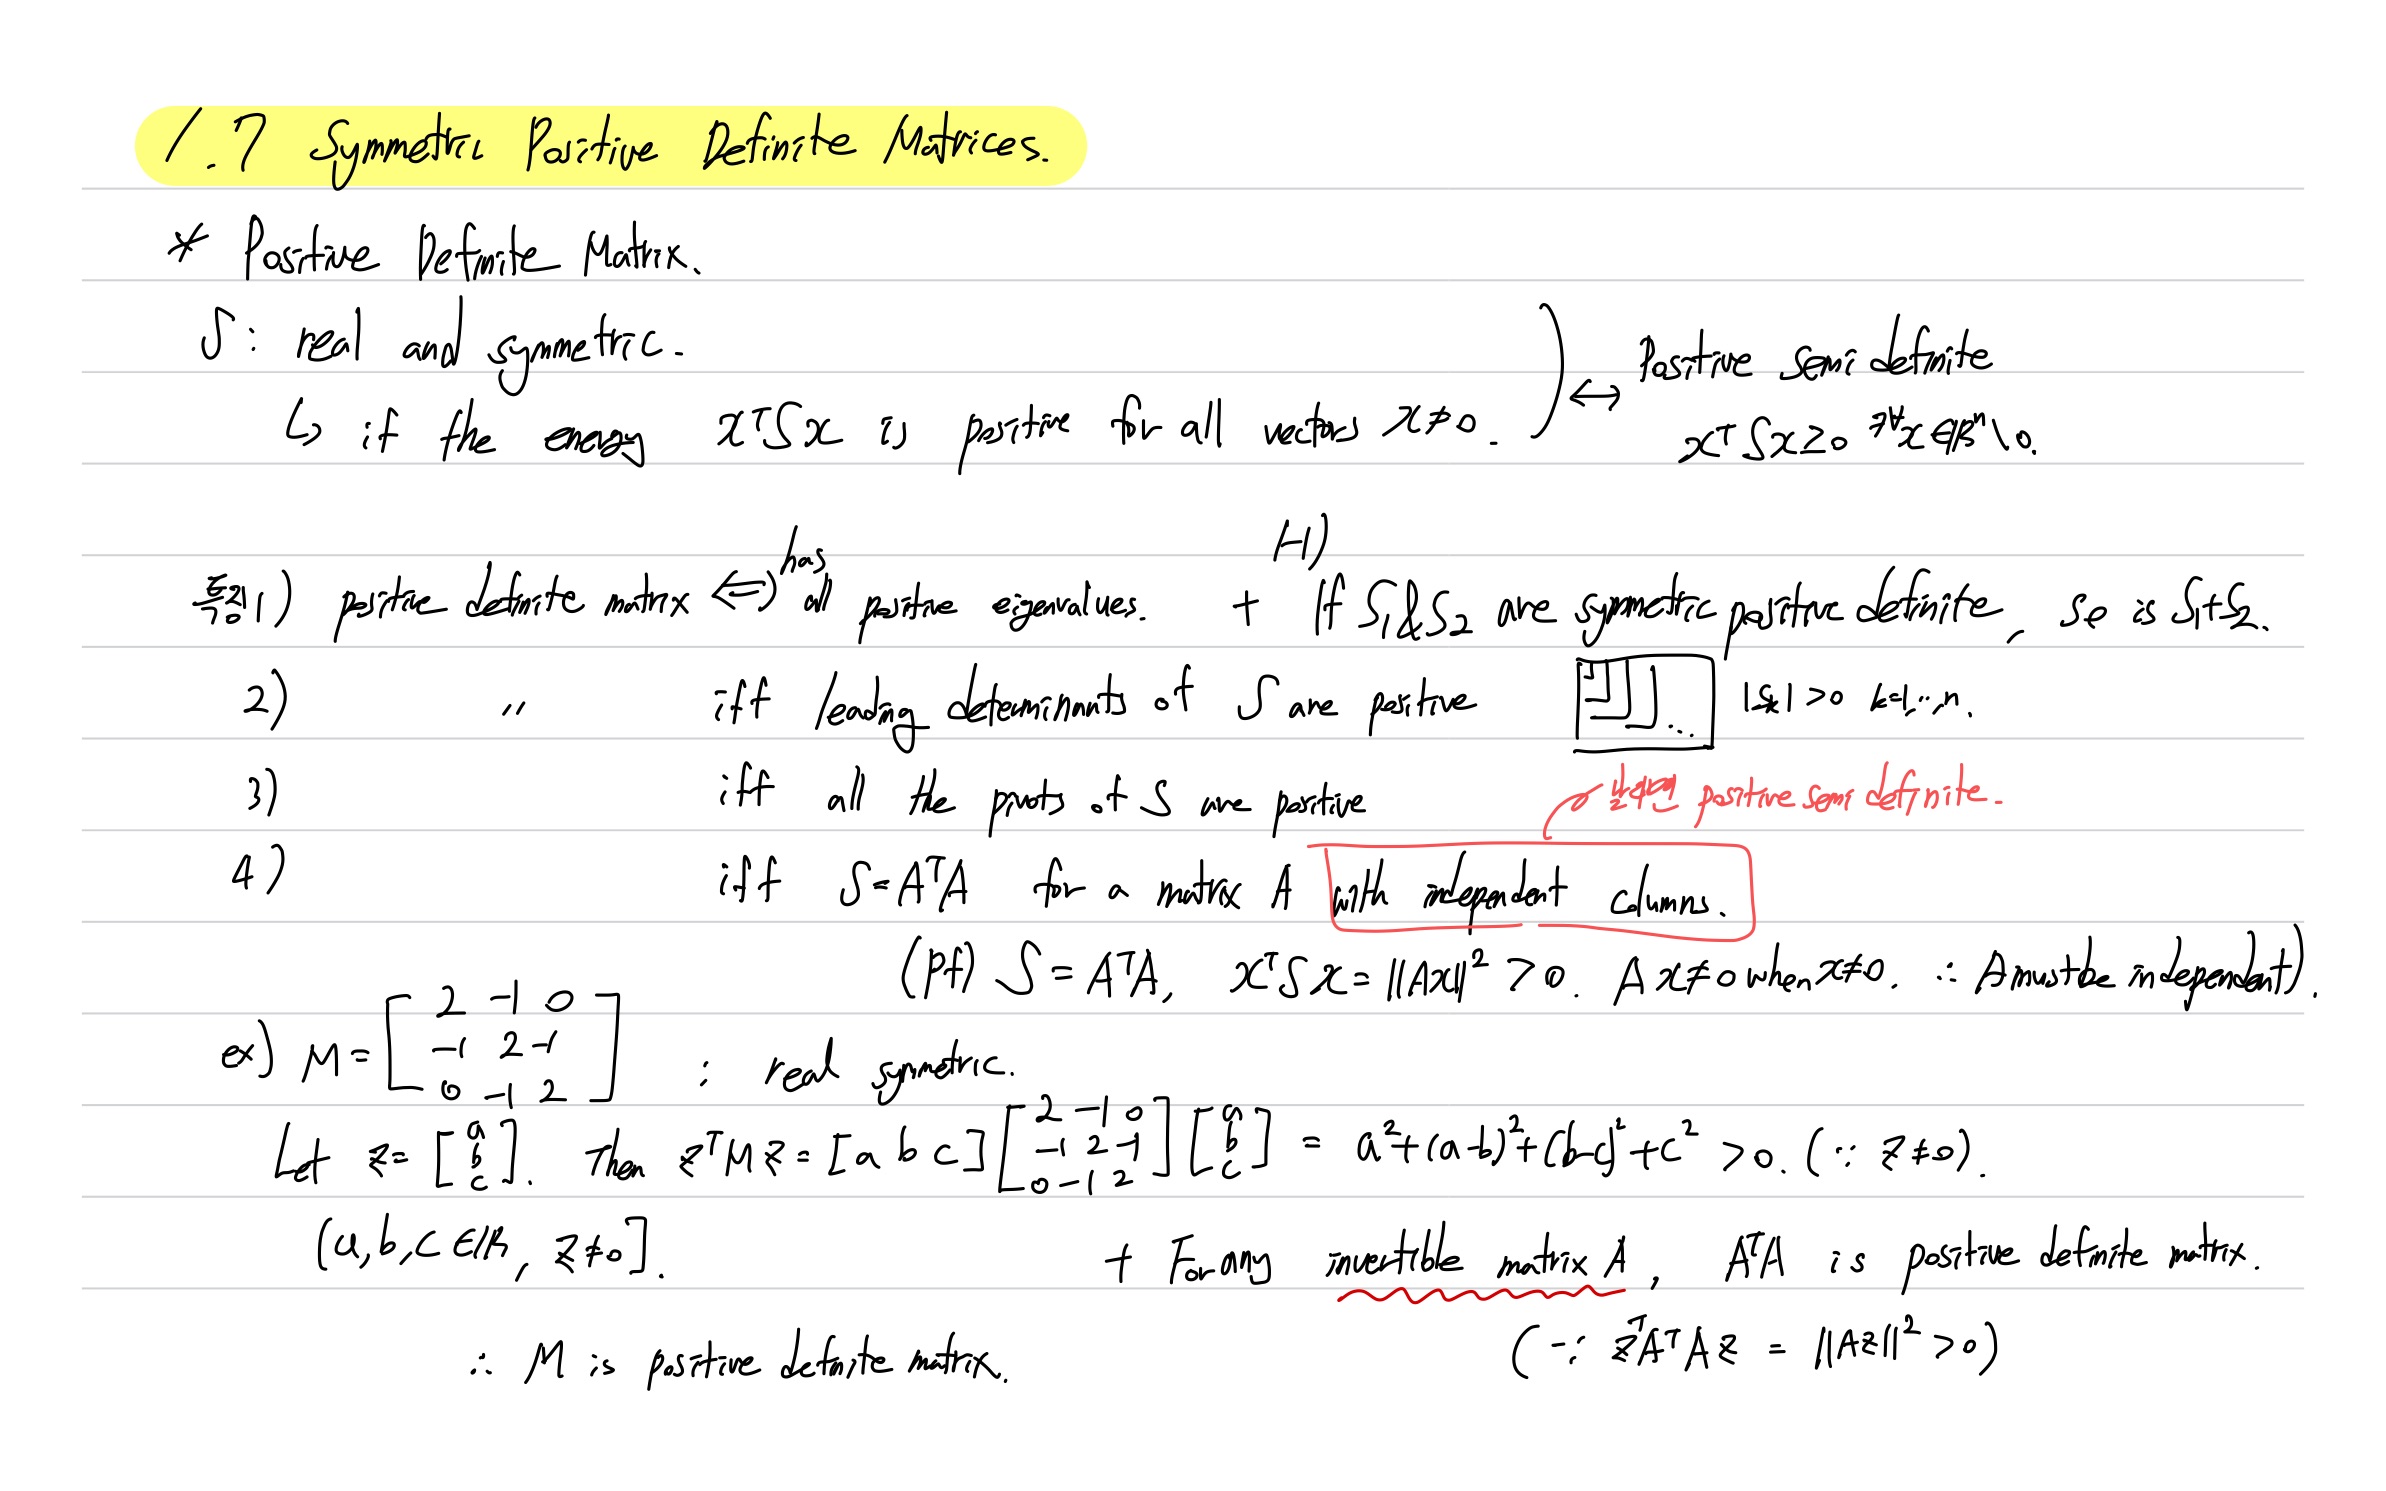 1.7 Symmetric Positive Definite Matrices.
* Positive Definite Matrix.
S: real and symmetric.
↳ if the energy xᵀSx is positive for all vectors x≠0.
↔ Positive semi definite
xᵀSx≥0 ∀x∈ℝⁿ\0.
1-1)
특징1) positive definite matrix ⟺ has all positive eigenvalues. + If S₁&S₂ are symmetric positive definite, so is S₁+S₂.
2) 〃 iff leading determinants of S are positive |Sₖ|>0 k=1,...,n.
3) iff all the pivots of S are positive
positive semi definite.
4) iff S=AᵀA for a matrix A with independent columns.
(pf) S=AᵀA, xᵀSx=||Ax||²>0. Ax≠0 when x≠0. ∴ A must be independent).
ex) M=[2 -1 0
-1 2 -1
0 -1 2] : real symmetric.
Let z=[a b c]. Then zᵀMz=[a b c][2 -1 0 -1 2 -1 0 -1 2][a b c] = a²+(a-b)²+(b-c)²+c²>0. (∵ z≠0).
(a,b,c∈ℝ, z≠0].
+ For any invertible matrix A, AᵀA is positive definite matrix.
(∵ zᵀAᵀAz = ||Az||²>0)
∴ M is positive definite matrix.